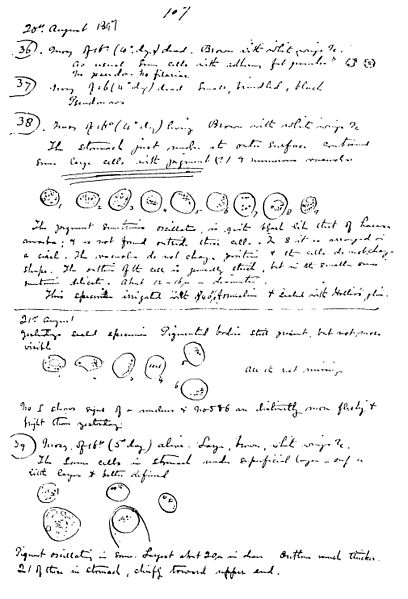 107
20th August 1897
36. Mosq of 16th (4th day) dead. Brown with white wings &c.
As usual some cells with
No
37 Mosq of 16 (4th day) dead Small, brindled, black
38. Mosq of 16th (4th day) living Brown with white wings &c
The stomach just under at outer surface contained
some large cells with pigment & numerous vacuoles
1 2 3 4 5 6 7 8 9
The pigment sometimes oscillates, is quite black like that of
& is not found outside these cells. In 8 it is arranged in
a circle. The vacuoles do not change position & the cells do not change
shape. The outline of the cell is generally but in the smaller ones
sometimes delicate. About 12-16µ in diameter.
This specimen irrigated with formalin & sealed with Hollis's glue.
21st August
Yesterday's sealed specimen Pigmented bodies still present, but not more
visible
1 2 3 4 5 6
All it not
No 5 shows signs of a nucleus & No 5 & 6 are distinctly more fleshy &
bright than yesterday.
39 Mosq. of 16th (5th day) alive. Large, brown, white wings &c.
The same cells in stomach under superficial layer &
with larger & better defined
Pigment oscillating in some. Largest about 20µ in diam Outline much thicker.
21 of these in stomach, chiefly toward upper end.